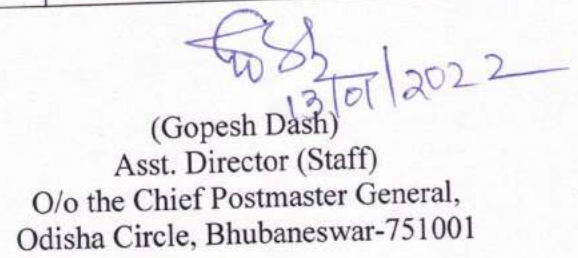 13/01/2022
(Gopesh Dash)
Asst. Director (Staff)
O/o the Chief Postmaster General,
Odisha Circle, Bhubaneswar-751001